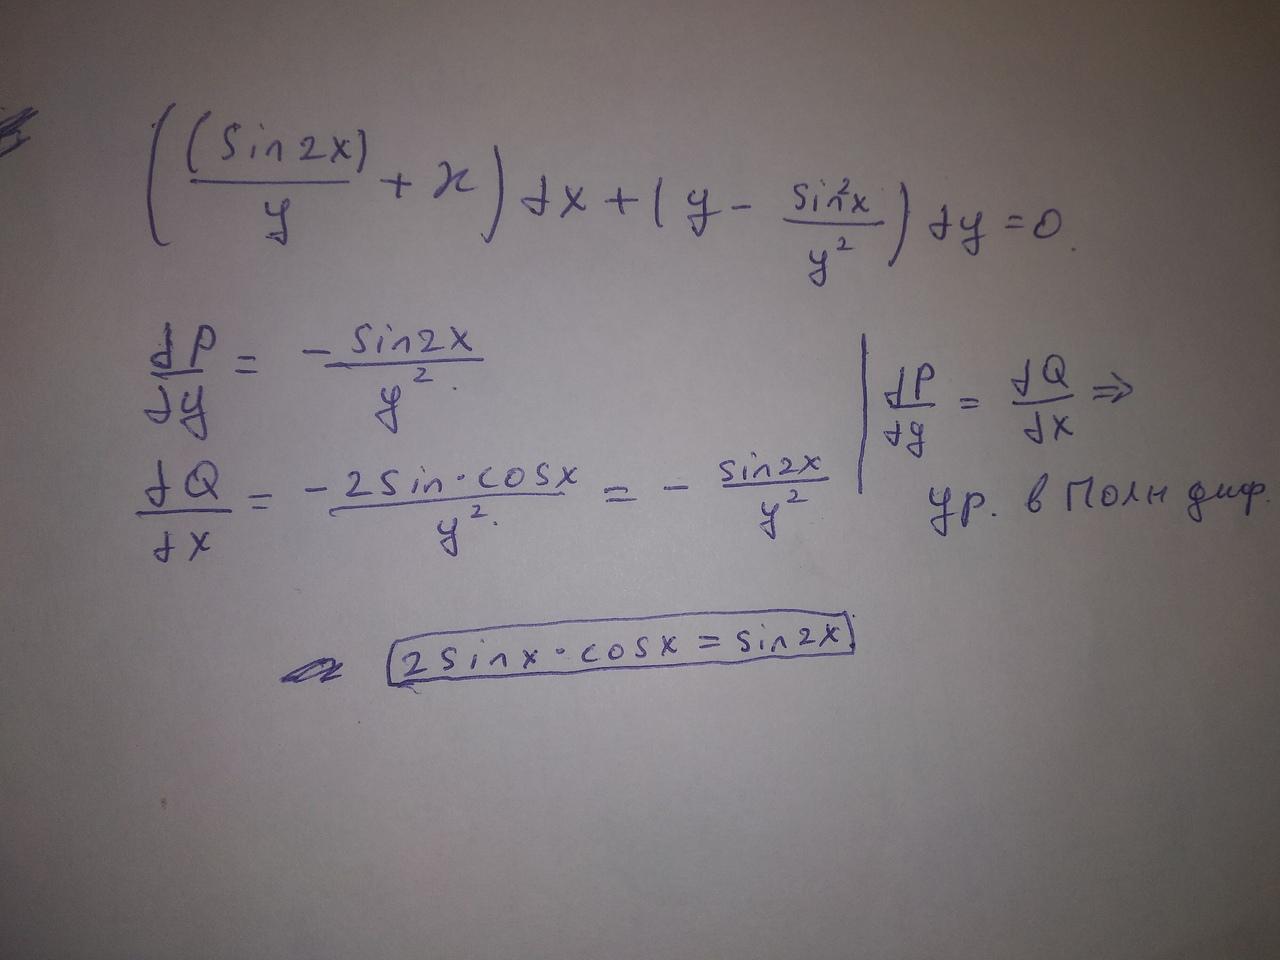 ((sin2x)/y + x) dx + (y - sin²x/y²) dy = 0.
dP/dy = - sin2x/y².
dQ/dx = - 2sin·cosx/y². = - sin2x/y²
dP/dy = dQ/dx ⇒
ур. в Полн диф.
2sinx·cosx = sin2x